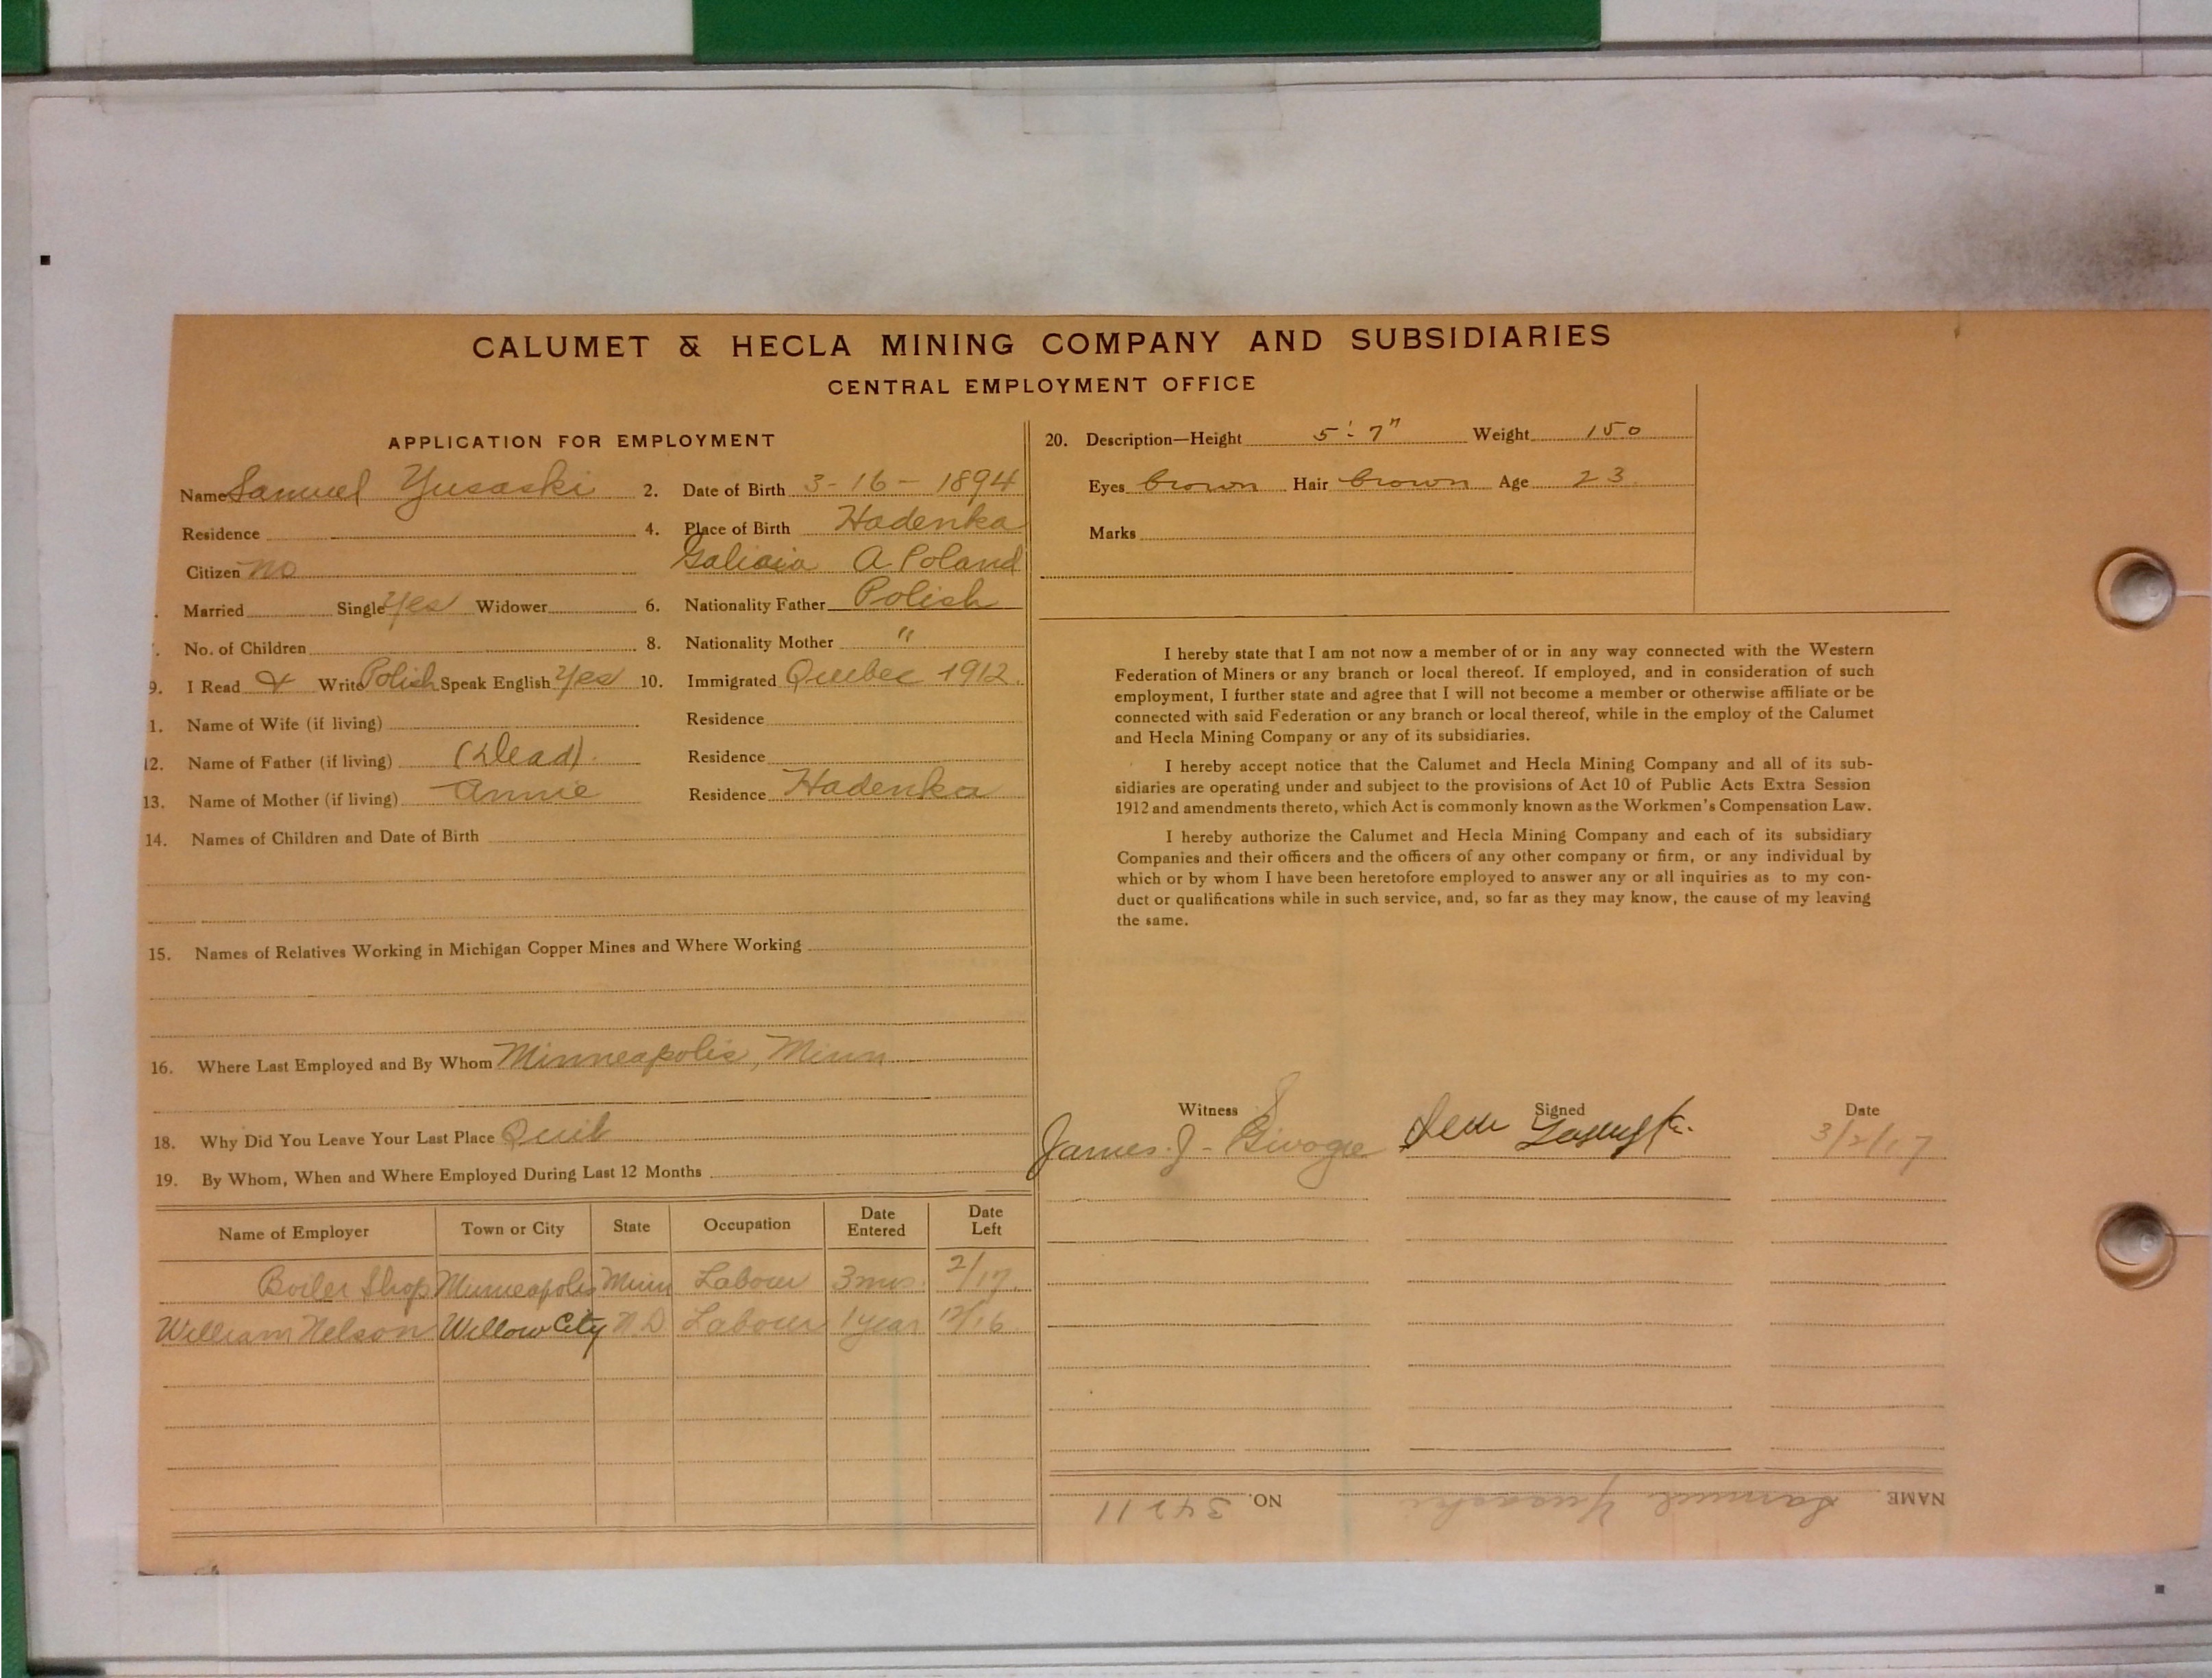 CALUMET & HECLA MINING COMPANY AND SUBSIDIARIES
CENTRAL EMPLOYMENT OFFICE
APPLICATION FOR EMPLOYMENT
Name Samuel Yusaski
2. Date of Birth 3-16-1894
Residence
4. Place of Birth Hadenka
Galicia A Poland
Citizen no
Married Single Yes Widower
6. Nationality Father Polish
No. of Children
8. Nationality Mother "
9. I Read & Write Polish Speak English Yes
10. Immigrated Quebec 1912.
1. Name of Wife (if living)
Residence
12. Name of Father (if living) (Dead).
Residence
13. Name of Mother (if living) Annie
Residence Hadenka
14. Names of Children and Date of Birth
15. Names of Relatives Working in Michigan Copper Mines and Where Working
16. Where Last Employed and By Whom Minneapolis, Minn
18. Why Did You Leave Your Last Place Quit
19. By Whom, When and Where Employed During Last 12 Months
Name of Employer Town or City State Occupation Date Entered Date Left
Boiler Shop Minneapolis Minn Labour 3 mos. 2/17.
William Nelson Willow City N.D Labour 1 year 12/16
20. Description—Height 5'.7" Weight 150
Eyes brown Hair brown Age 23
Marks
I hereby state that I am not now a member of or in any way connected with the Western
Federation of Miners or any branch or local thereof. If employed, and in consideration of such
employment, I further state and agree that I will not become a member or otherwise affiliate or be
connected with said Federation or any branch or local thereof, while in the employ of the Calumet
and Hecla Mining Company or any of its subsidiaries.
I hereby accept notice that the Calumet and Hecla Mining Company and all of its sub-
sidiaries are operating under and subject to the provisions of Act 10 of Public Acts Extra Session
1912 and amendments thereto, which Act is commonly known as the Workmen's Compensation Law.
I hereby authorize the Calumet and Hecla Mining Company and each of its subsidiary
Companies and their officers and the officers of any other company or firm, or any individual by
which or by whom I have been heretofore employed to answer any or all inquiries as to my con-
duct or qualifications while in such service, and, so far as they may know, the cause of my leaving
the same.
Witness Signed Date
James. J. 3/2/17
NAME Samuel Yusaski NO. 34211